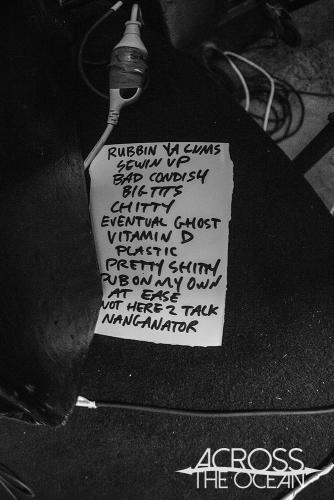 RUBBIN YA GUMS
SEWIN UP
BAD CONDISH
BIG TITS
CHITTY
EVENTUAL GHOST
VITAMIN D
PLASTIC
PRETTY SHITTY
PUB ON MY OWN
AT EASE
NOT HERE 2 TALK
NANGANATOR
ACROSS
THE OCEAN